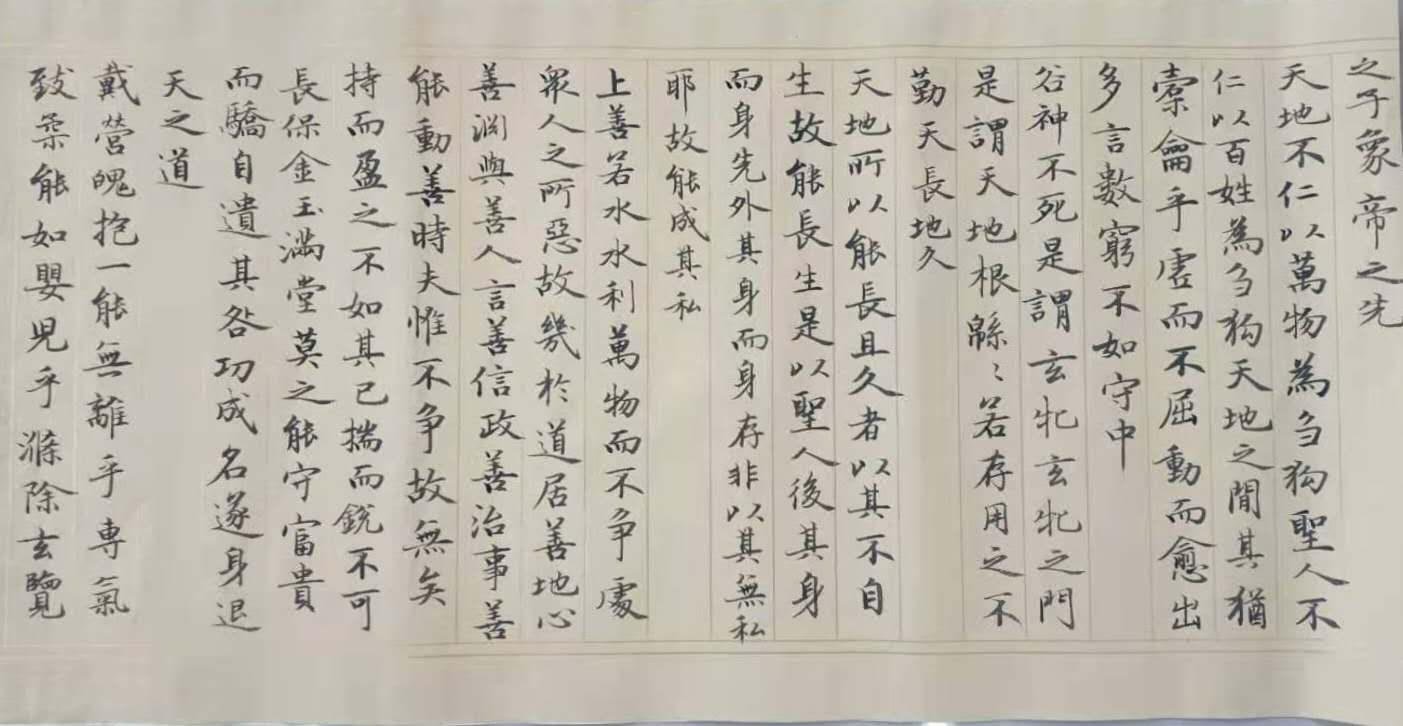 之子象帝之先
天地不仁以萬物為芻狗聖人不
仁以百姓為芻狗天地之間其猶
橐龠乎虛而不屈動而愈出
多言數窮不如守中
谷神不死是謂玄牝玄牝之門
是謂天地根緜〻若存用之不
勤天長地久
天地所以能長且久者以其不自
生故能長生是以聖人後其身
而身先外其身而身存非以其無私
耶故能成其私
上善若水水利萬物而不争處
衆人之所惡故幾於道居善地心
善渊與善人言善信政善治事善
能動善時夫惟不争故無矣
持而盈之不如其已揣而銳不可
長保金玉滿堂莫之能守富貴
而驕自遺其咎功成名遂身退
天之道
戴營魄抱一能無離乎專氣
致柔能如嬰兒乎滌除玄覽